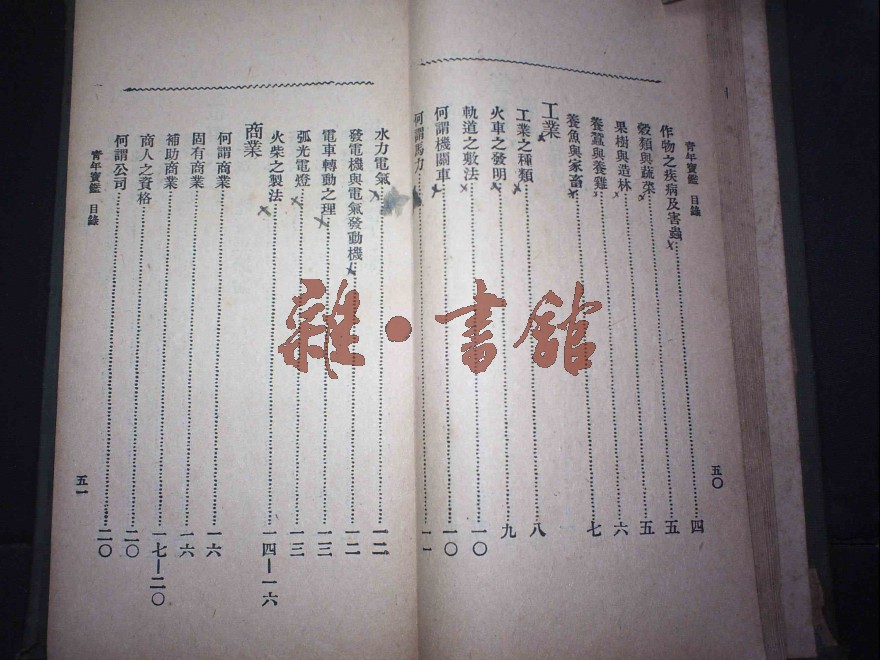 青年寶鑑 目錄
五〇
作物之疾病及害蟲……四
穀類與蔬菜……五
果樹與造林……五
養蠶與養雞……六
養魚與家畜……七
工業
工業之種類……八
火車之發明……九
軌道之敷法……一〇
何謂機關車……一〇
何謂馬力……一一
水力電氣……一二
發電機與電氣發動機……一二
電車轉動之理……一三
弧光電燈……一三
火柴之製法……一四—一六
商業
何謂商業……一六
固有商業……一六
補助商業……一七—二〇
商人之資格……二〇
何謂公司……二〇
青年寶鑑 目錄
五一
雜·書館